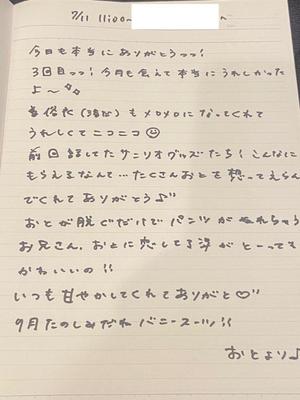 7/11 11:00~
今日も本当にありがとうっっ!
3回目っっ!今月も会えて本当にうれしかった
よ〜
も メロメロになってくれて
うれしくてニコニコ
前回話してたサンリオグッズたち!こんなに
もらえるなんて…たくさんおとを想ってえらん
でくれてありがとう♪
おとが脱ぐだけでパンツが れちゃう
お兄さん、おとに恋してる姿がと〜っても
かわいいの!!
いつも甘やかしてくれてありがと♡
9月たのしみだね バニースーツ!!
おとより♪